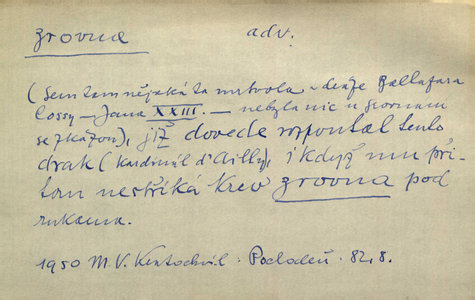 zrovna adv.
(Sem tam nějaká ta mrtvola – dože Baltasara
Cossy – Jana XXIII. – nebyla nic u srovnání
se zkázou), již dovede rozpoutat tento
drak (kardinál d'Ailly), i když mu při
tom nestříká krev zrovna pod
rukama.
1950 M. V. Kratochvíl. Pochodeň. 82, 8.